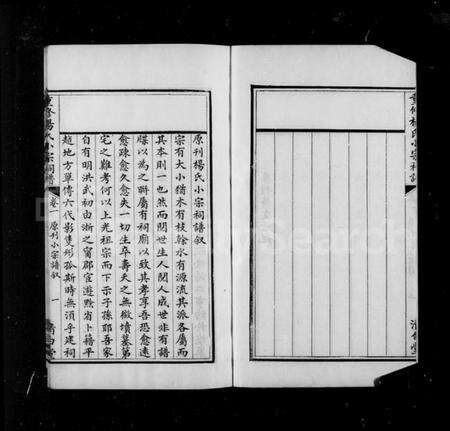 原刊楊氏小宗祠譜叙
宗有大小猶木有枝榦水有源流其派各屬而
其本則一也然而閱世生人閱人成世非有譜
牒以為之聯屬有祠廟以致其孝享吾恐愈遠
愈疎愈久愈失一切生卒壽夭之無徵墳墓第
宅之難考何以上光祖宗而下示子孫耶吾家
自有明洪武初由浙之甯郡宦遊黔省卜籍平
越地方單傳六代影隻形孤斯時無須乎建祠
重修楊氏小宗祠譜
卷一原刊小宗譜叙
一
清白堂
重修楊氏小宗祠譜
清白堂